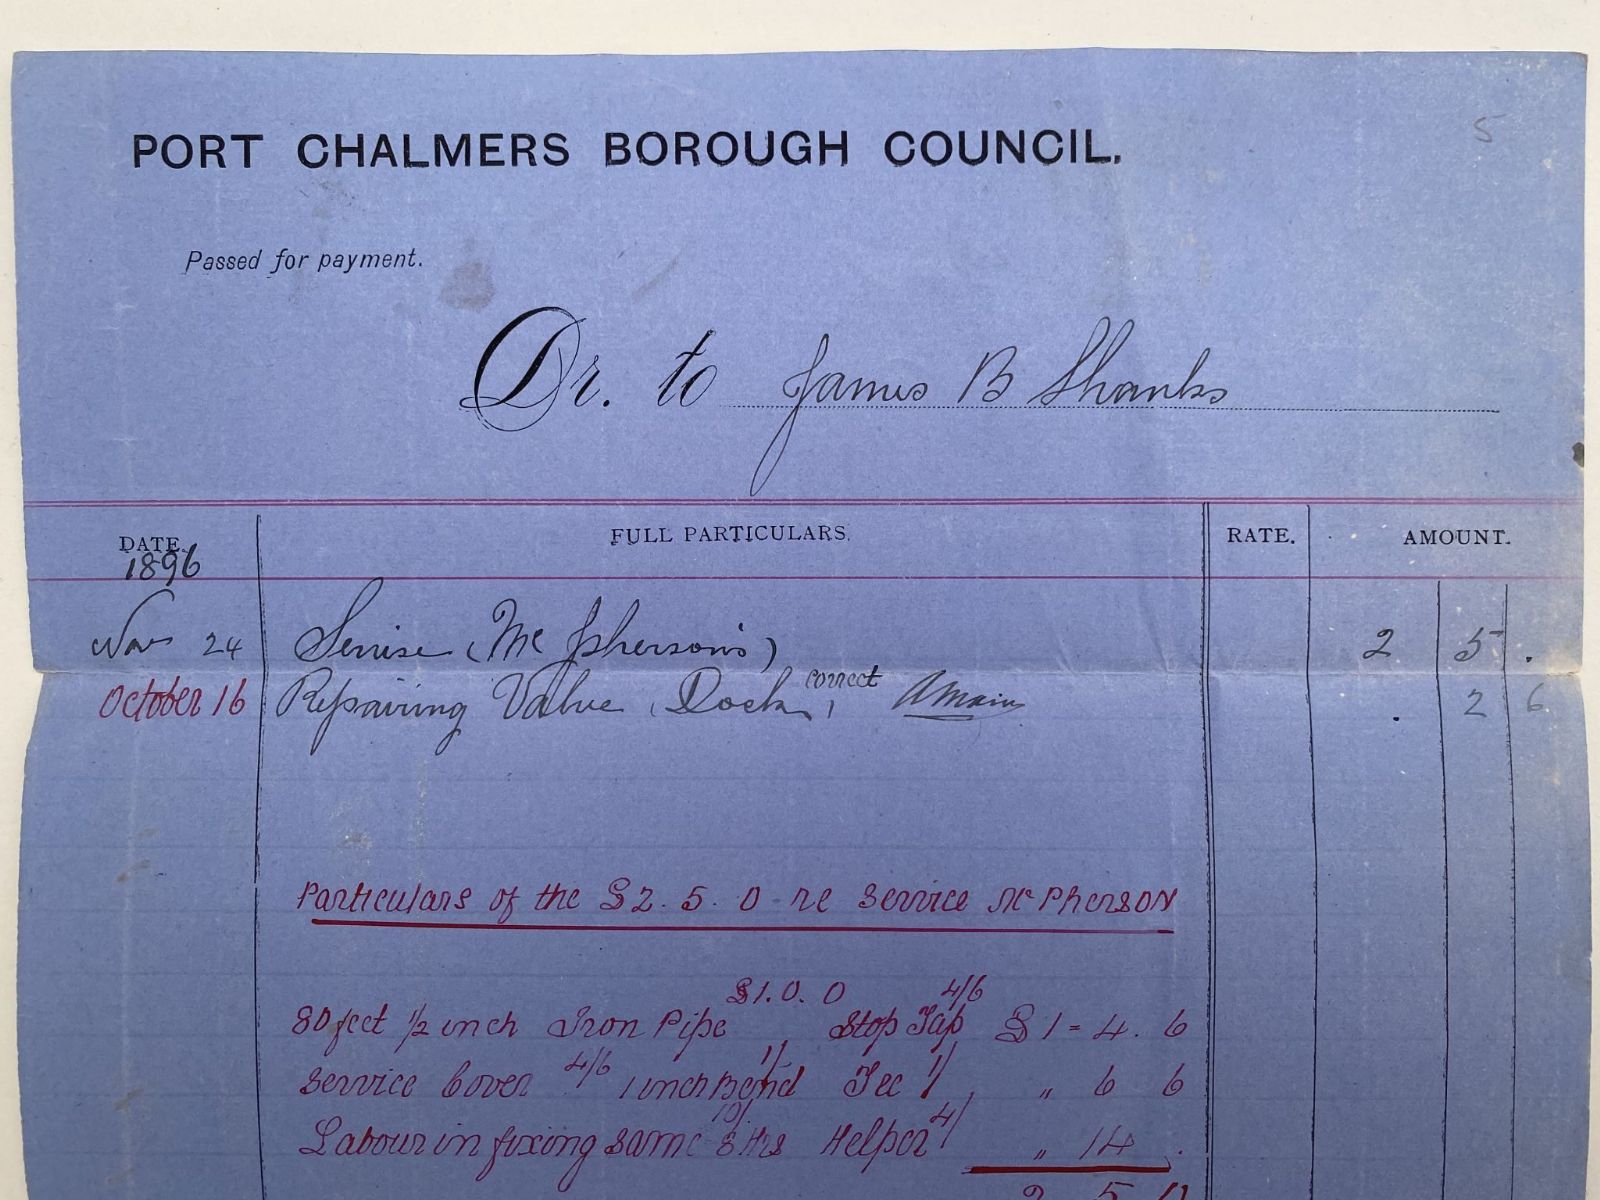 5
PORT CHALMERS BOROUGH COUNCIL.
Passed for payment.
Dr. to James B Shanks
DATE. FULL PARTICULARS. RATE. AMOUNT.
1896
Nov 24 Servise (McPhersons) 2 5 .
October 16 Repairing Valve, Dock, correct AMain . 2 6
Particulars of the £2. 5. 0 re Service McPherson
£1. 0. 0 4/6
80 feet 1/2 inch Iron Pipe Stop Tap £1 = 4. 6
4/6 1/ 1/
Service Cover 1 inch Bend Tee " 6 6
10/ 4/
Labour in fixing same 8 Hrs Helper " 14 .
2 5 0